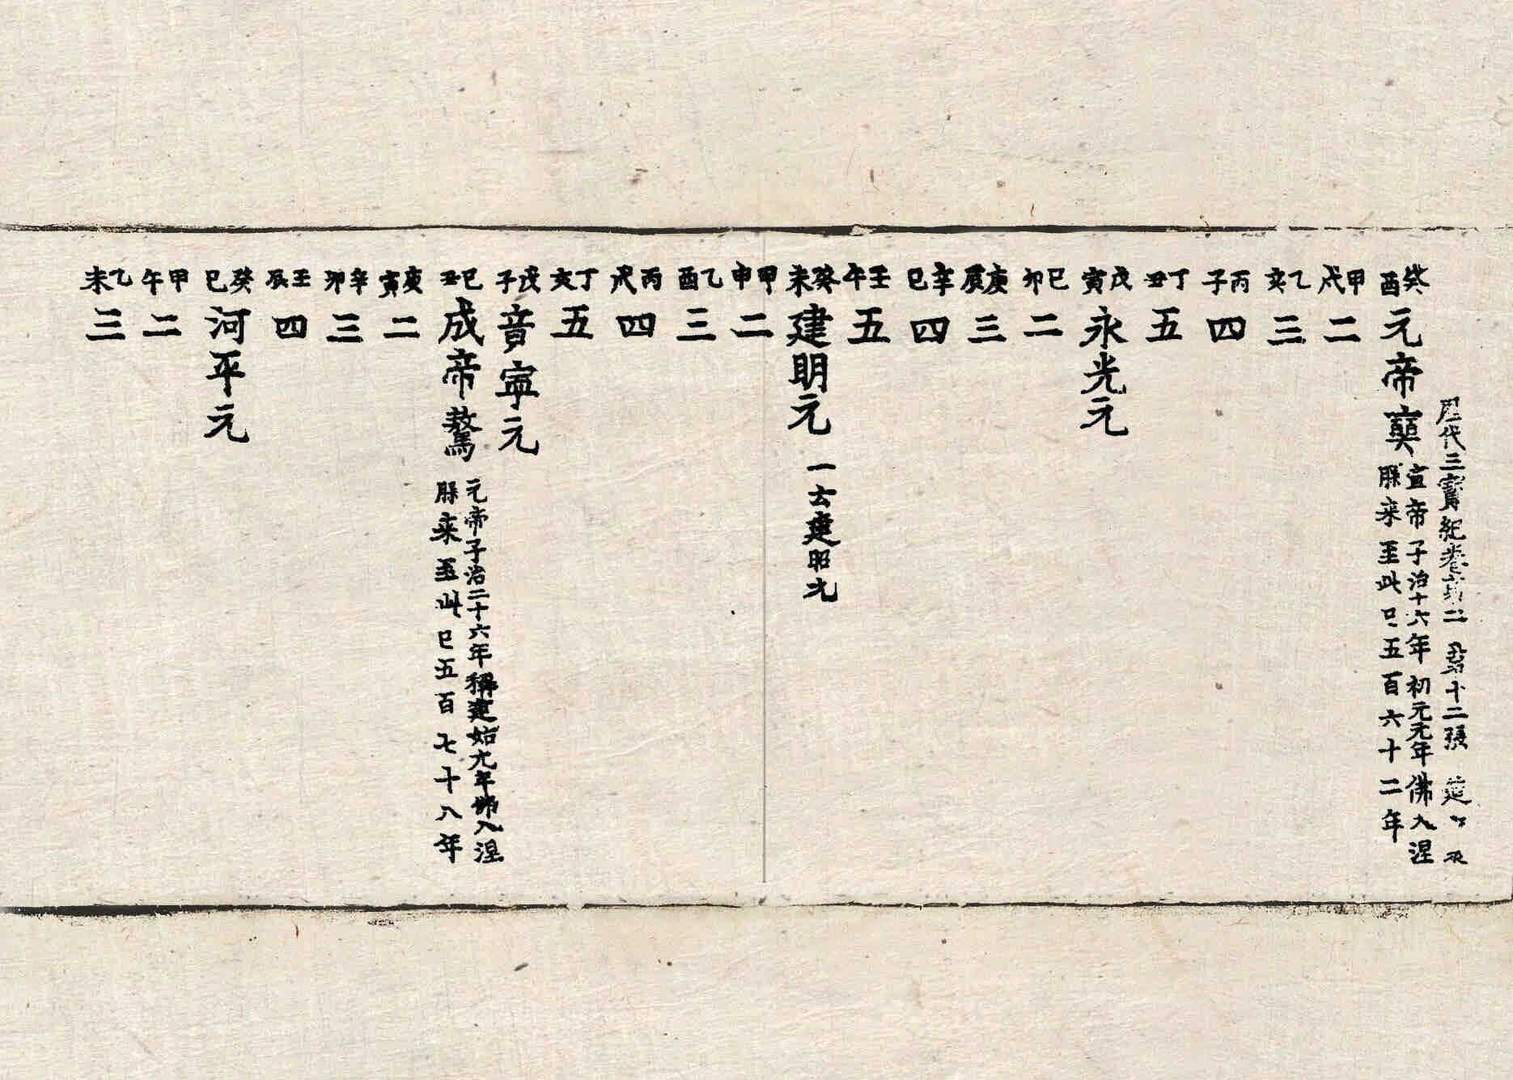 歷代三寶紀卷第二 第十二張 楚
癸酉 元帝奭 宣帝子治十六年初元元年佛入涅
縣来至此已五百六十二年
甲戌 二
乙亥 三
丙子 四
丁丑 五
戊寅 永光元
巳卯 二
庚辰 三
辛巳 四
壬午 五
癸未 建明元 一云建昭元
甲申 二
乙酉 三
丙戌 四
丁亥 五
戊子 音寧元
巳丑 成帝驁 元帝子治二十六年稱建始元年佛入涅
縣来至此已五百七十八年
庚寅 二
辛卯 三
壬辰 四
癸巳 河平元
甲午 二
乙未 三